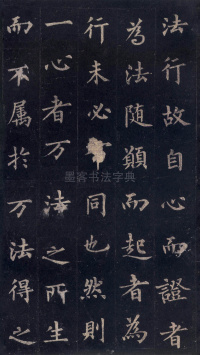 法行故自心而證者
為法随顯而起者為
行未必同也然則
一心者万法之所生
而不属於万法得之
墨客书法字典